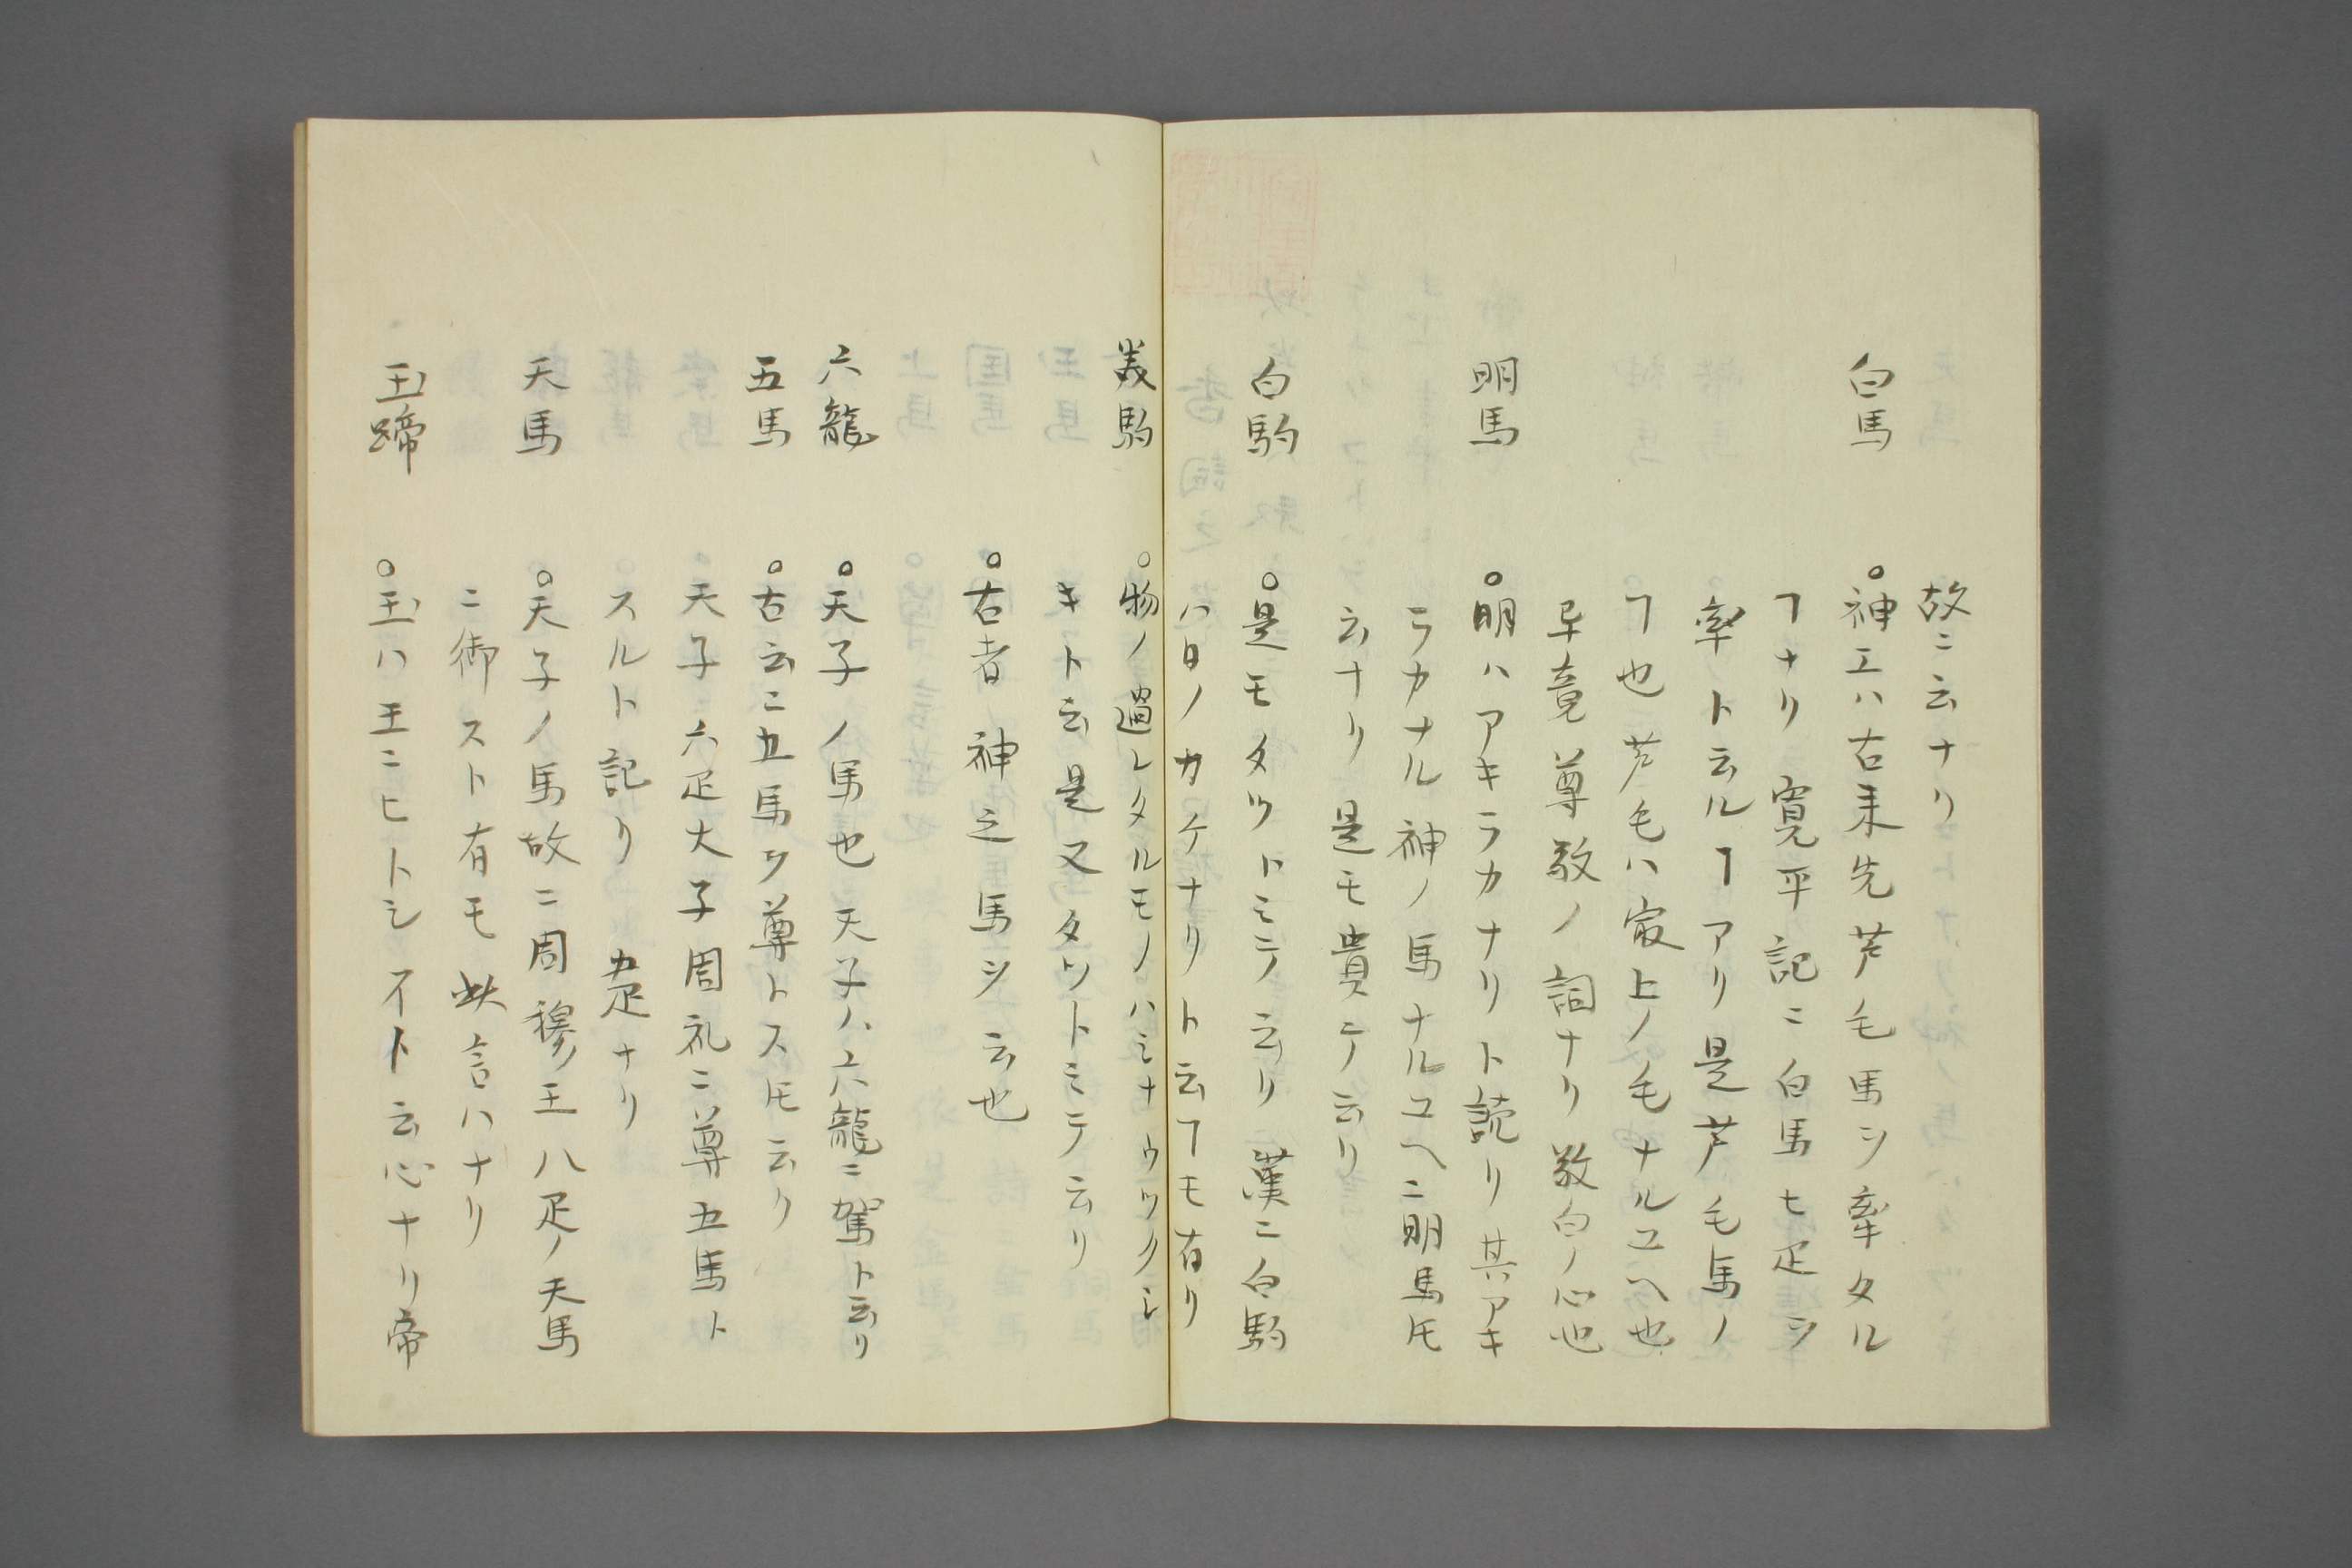 故ニ云ナリ
白馬　○神エハ古来先芦毛馬ヲ牽タル
ヿナリ寛平記ニ白馬七疋ヲ
牽ト云ルヿアリ是芦毛馬ノ
ヿ也芦毛ハ最上ノ毛ナルユヘ也
畢竟尊敬ノ詞ナリ敬白ノ心也
明馬　○明ハアキラカナリト読リ其アキ
ラカナル神ノ馬ナルユヘニ明馬𪜈
云ナリ是モ貴テ云リ
白駒　○是モタットミテ云リ漢ニ白駒
ハ日ノカケナリト云ヿモ有リ
美駒　○物ノ過レタルモノハミナウツクシ
キト云是又タツトミテ云リ
○右者神之馬ヲ云也
六龍　○天子ノ馬也天子ハ六龍ニ駕ト云リ
五馬　○古云ニ五馬ヲ尊トス𪜈云リ
天子六疋大子周礼ニ尊五馬ト
スルト記リ　五疋ナリ
天馬　○天子ノ馬故ニ周穆王八疋ノ天馬
ニ御スト有モ此言ハナリ
玉蹄　○玉ハ王ニヒトシイト云心ナリ帝